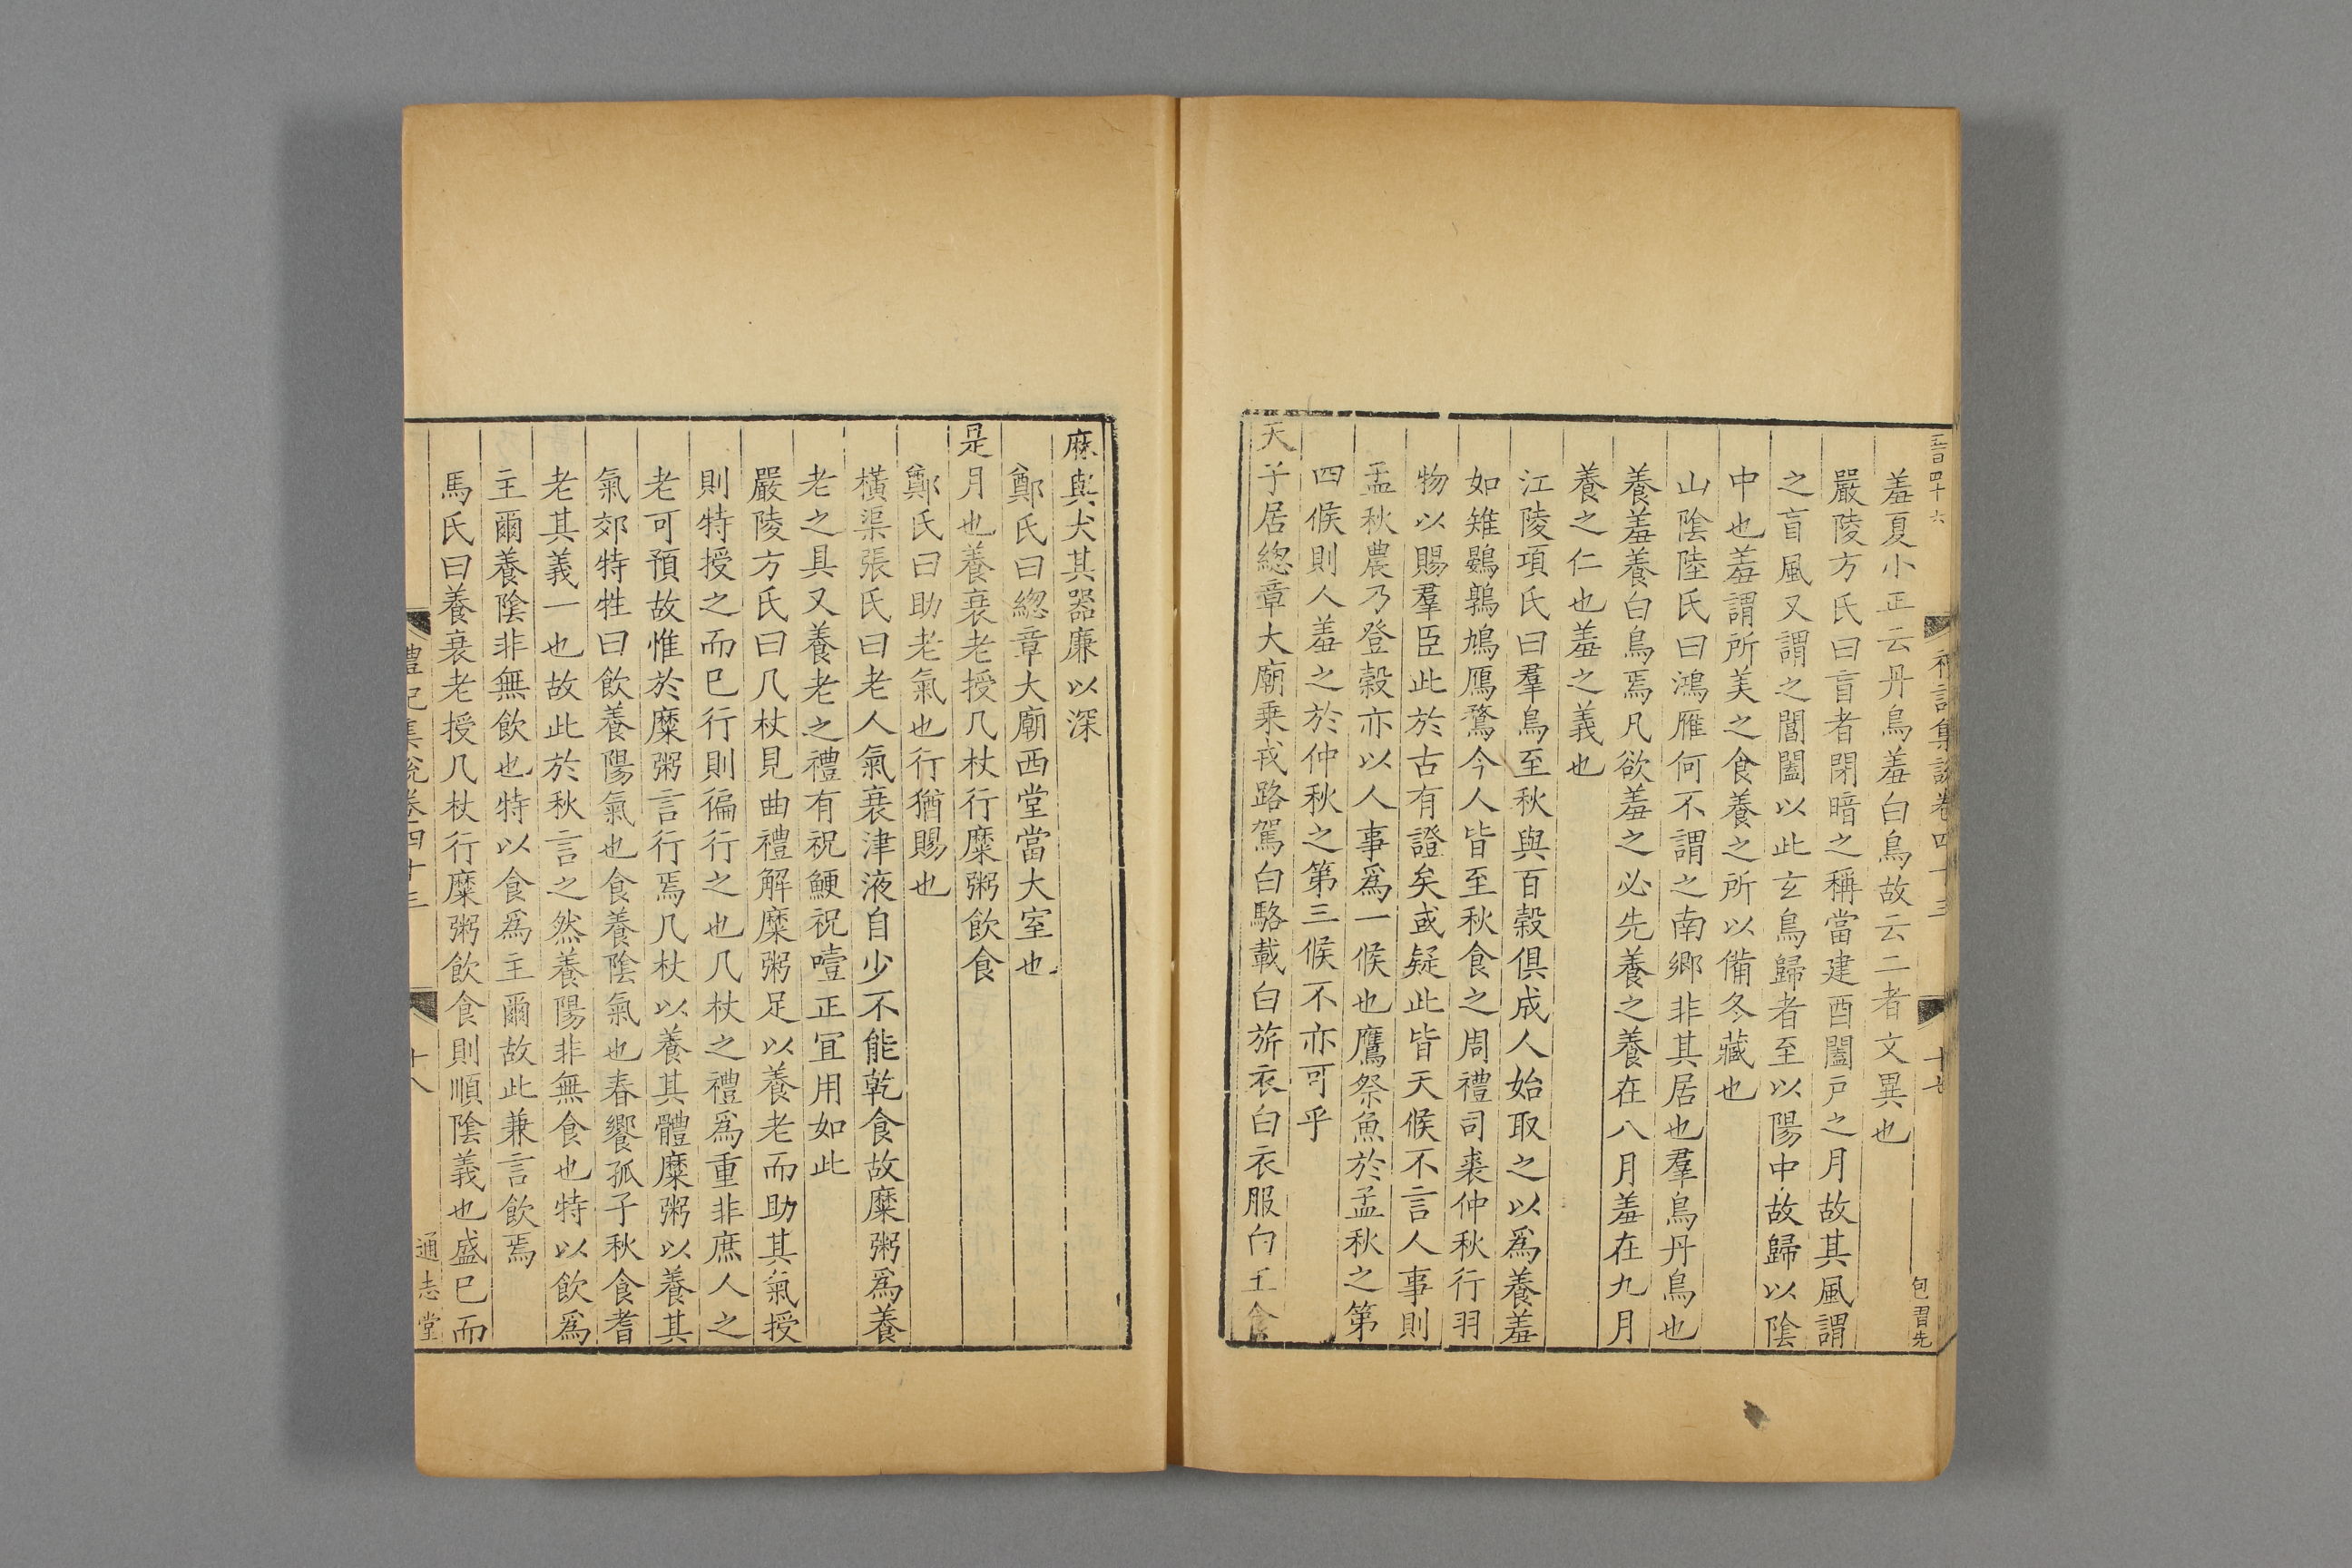 羞夏小正云丹鳥羞白鳥故云二者文異也
嚴陵方氏曰盲者閉暗之稱當建酉闔戸之月故其風謂
之盲風又謂之閶闔以此玄鳥歸者至以陽中故歸以陰
中也羞謂所美之食養之所以備冬藏也
山陰陸氏曰鴻雁何不謂之南鄉非其居也羣鳥丹鳥也
養羞養白鳥焉凡欲羞之必先養之養在八月羞在九月
養之仁也羞之義也
江陵項氏曰羣鳥至秋與百穀俱成人始取之以爲養羞
如雉鷃鶉鳩鴈鶩今人皆至秋食之周禮司裘仲秋行羽
物以賜羣臣此於古有證矣或疑此皆天候不言人事則
孟秋農乃登穀亦以人事爲一候也鷹祭魚於孟秋之第
四候則人羞之於仲秋之第三候不亦可乎
天子居緫章大廟乗戎路駕白駱載白旂衣白衣服白玉食
麻與犬其器廉以深
鄭氏曰緫章大廟西堂當大室也
是月也養衰老授几杖行糜粥飲食
鄭氏曰助老氣也行猶賜也
橫渠張氏曰老人氣衰津液自少不能乾食故糜粥爲養
老之具又養老之禮有祝鯁祝噎正冝用如此
嚴陵方氏曰几杖見曲禮解糜粥足以養老而助其氣授
則特授之而巳行則徧行之也几杖之禮爲重非庶人之
老可預故惟於糜粥言行焉几杖以養其體糜粥以養其
氣郊特牲曰飲養陽氣也食養陰氣也春饗孤子秋食耆
老其義一也故此於秋言之然養陽非無食也特以飲爲
主爾養陰非無飲也特以食爲主爾故此兼言飲焉
馬氏曰養衰老授几杖行糜粥飲食則順陰義也盛巳而
禮記集說卷四十三
十八
通志堂